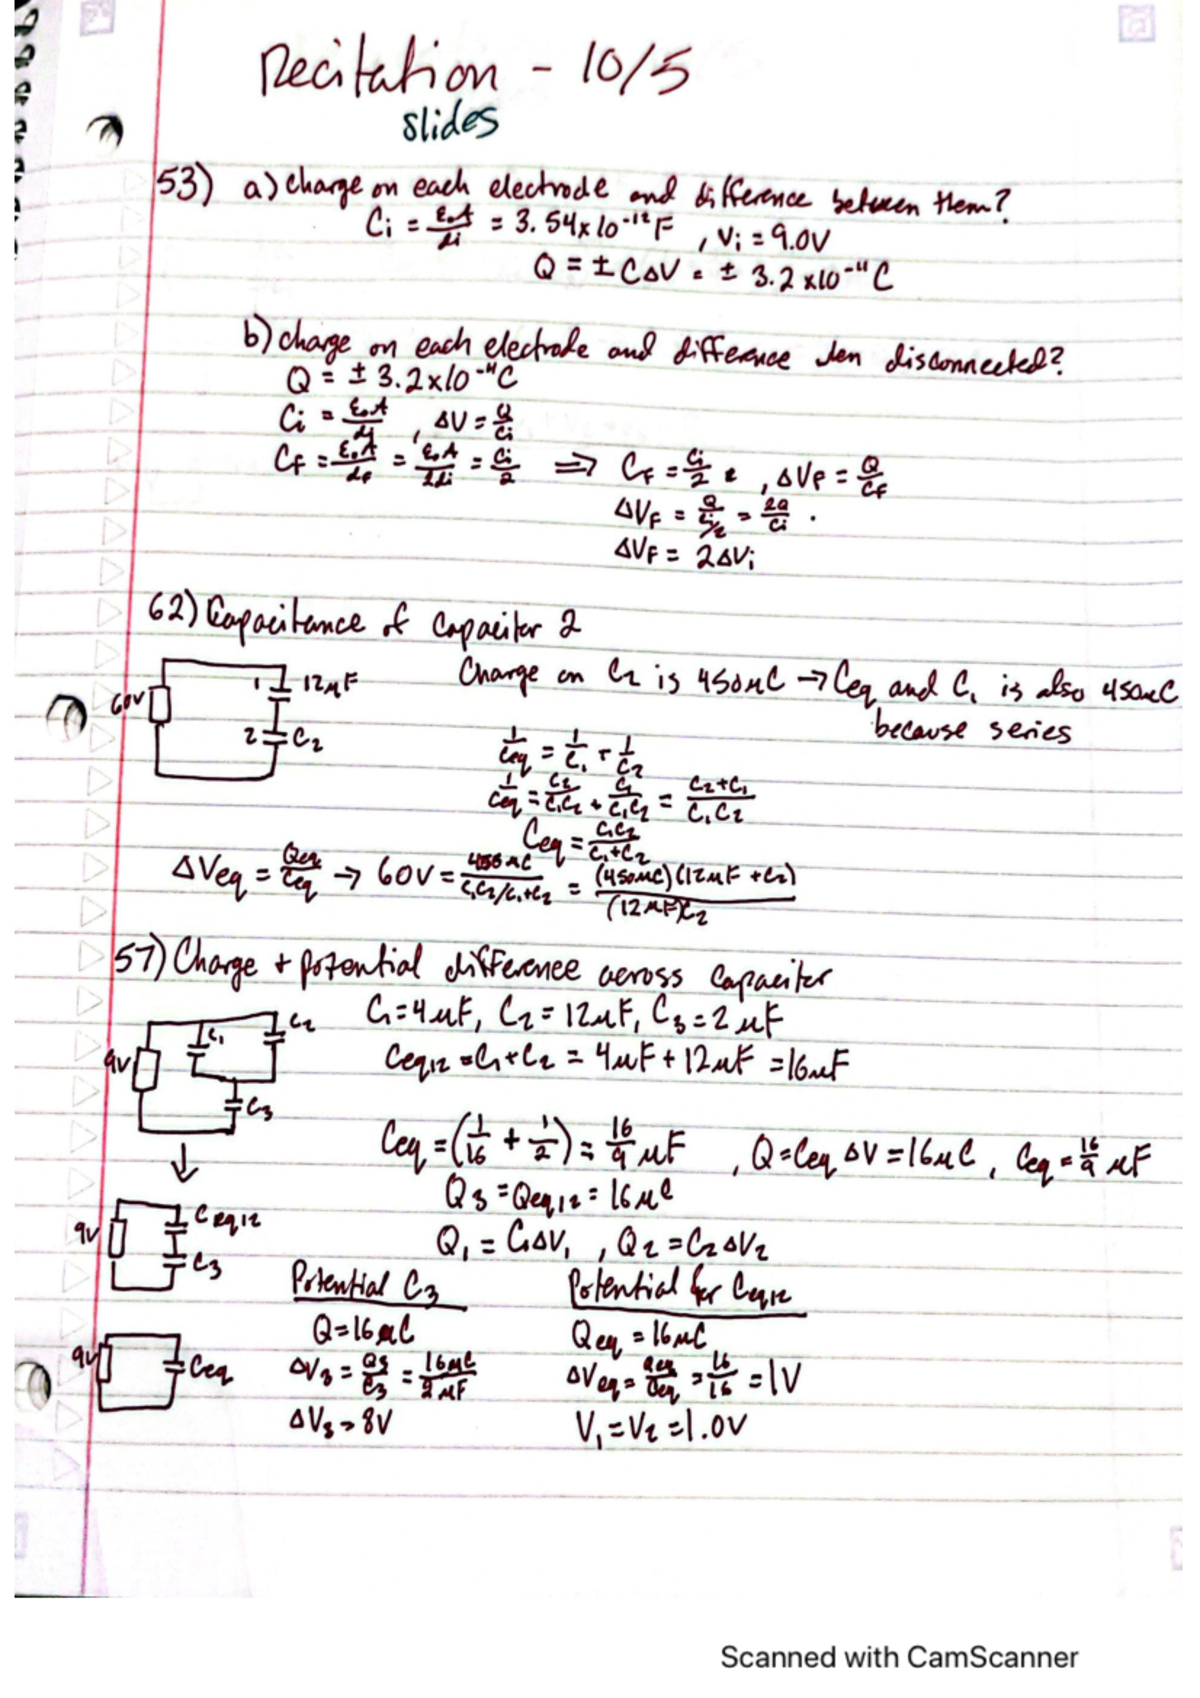 Recitation - 10/5
slides
53) a) charge on each electrode and difference between them?
Ci = ε₀A/di = 3.54x10⁻¹² F , Vi = 9.0V
Q = ± CΔV = ± 3.2 x10⁻¹¹ C
b) charge on each electrode and difference when disconnected?
Q = ± 3.2x10⁻¹¹C
Ci = ε₀A/di , ΔV = Q/Ci
CF = ε₀A/dF = ε₀A/2di = Ci/2 => CF = Ci/2 , ΔVF = Q/CF
ΔVF = Q/Ci/2 = 2Q/Ci .
ΔVF = 2ΔVi
62) Capacitance of capacitor 2
Charge on C2 is 450μC → Ceq and C1 is also 450μC
because series
60V 1 12μF
2 C2
1/Ceq = 1/C1 + 1/C2
1/Ceq = C2/C1C2 + C1/C1C2 = C2+C1/C1C2
Ceq = C1C2/C1+C2
ΔVeq = Qeq/Ceq → 60V = 450μC/C1C2/C1+C2 = (450μC)(12μF + C2)/(12μF)C2
57) Charge + potential difference across capacitor
C1=4μF, C2=12μF, C3=2μF
Ceq12 = C1+C2 = 4μF + 12μF = 16μF
9V C1 C2
C3
Ceq = (1/16 + 1/2) = 16/9 μF , Q=Ceq ΔV = 16μC , Ceq = 16/9 μF
Q3 = Qeq12 = 16μC
Q1 = C1ΔV1 , Q2 = C2ΔV2
9V Ceq12
C3
Potential C3 Potential for Ceq12
Q=16μC Qeq = 16μC
9V Ceq
ΔV3 = Q3/C3 = 16μC/2μF ΔVeq = Qeq/Ceq = 16/16 = 1V
ΔV3 = 8V V1 = V2 = 1.0V
Scanned with CamScanner